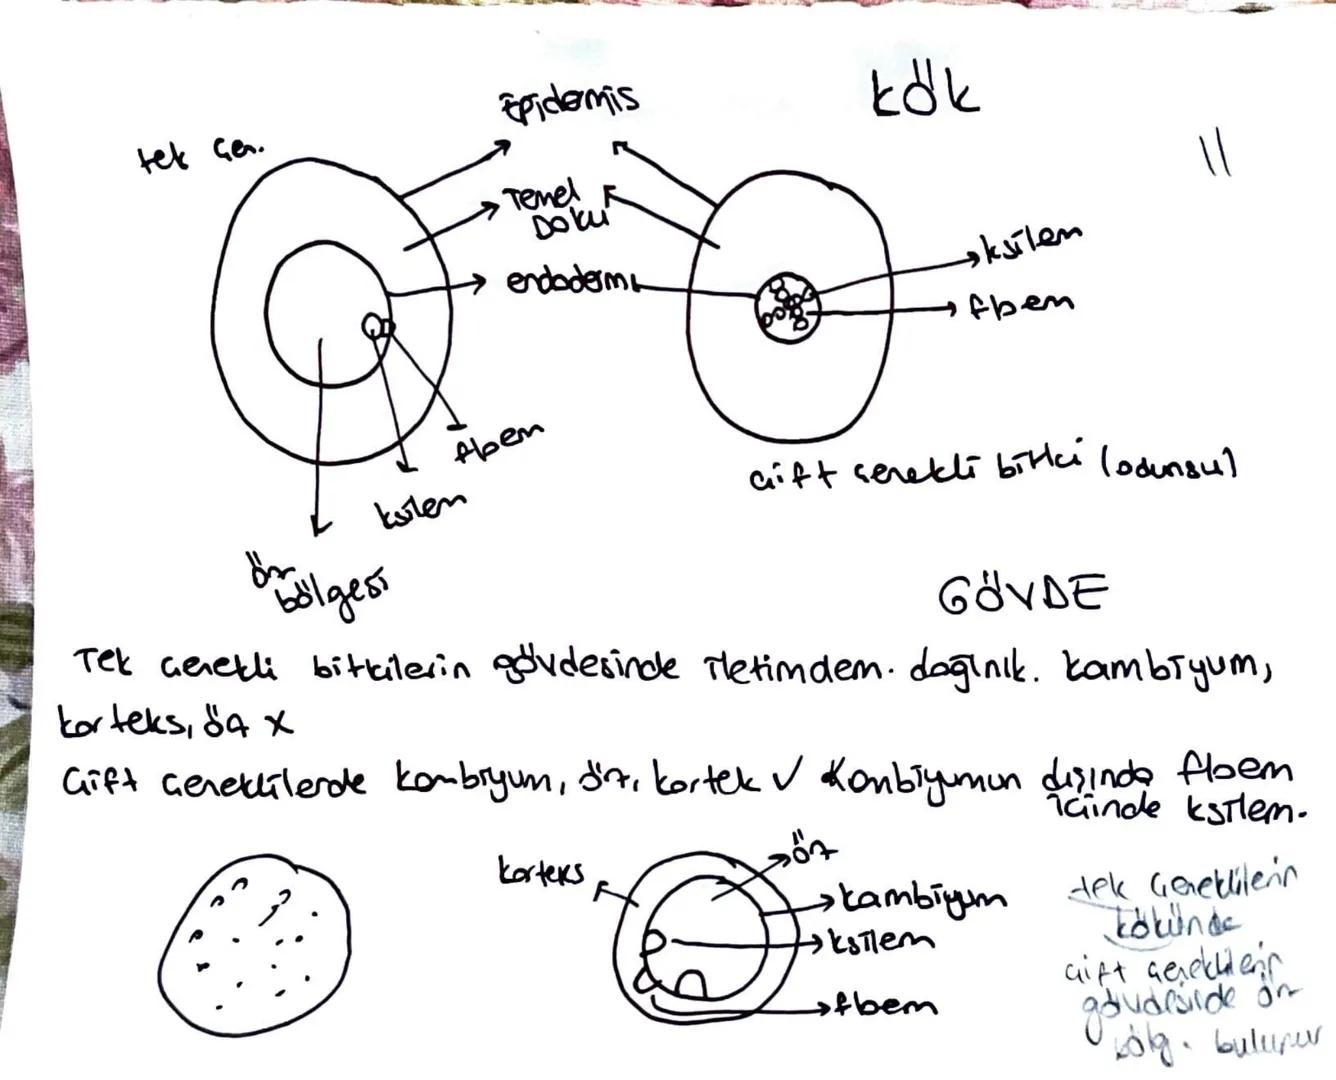 KÖK
11
tek çen.
Epidermis
Temel
Doku
endodermi
ksilem
floem
floem
ksilem
öz
bölgesi
Çift çenekli bitki (odunsu)
GÖVDE
Tek çenekli bitkilerin gövdesinde iletimdem. dağınık. kambiyum,
korteks, öz X
Çift çeneklilerde kambiyum, öz, kortek ✓ Kambiyumun dışında floem
içinde ksilem.
korteks
öz
kambiyum
ksilem
floem
tek çeneklilerin
kökünde
çift çeneklilerin
gövdesinde öz
bölg. bulunur